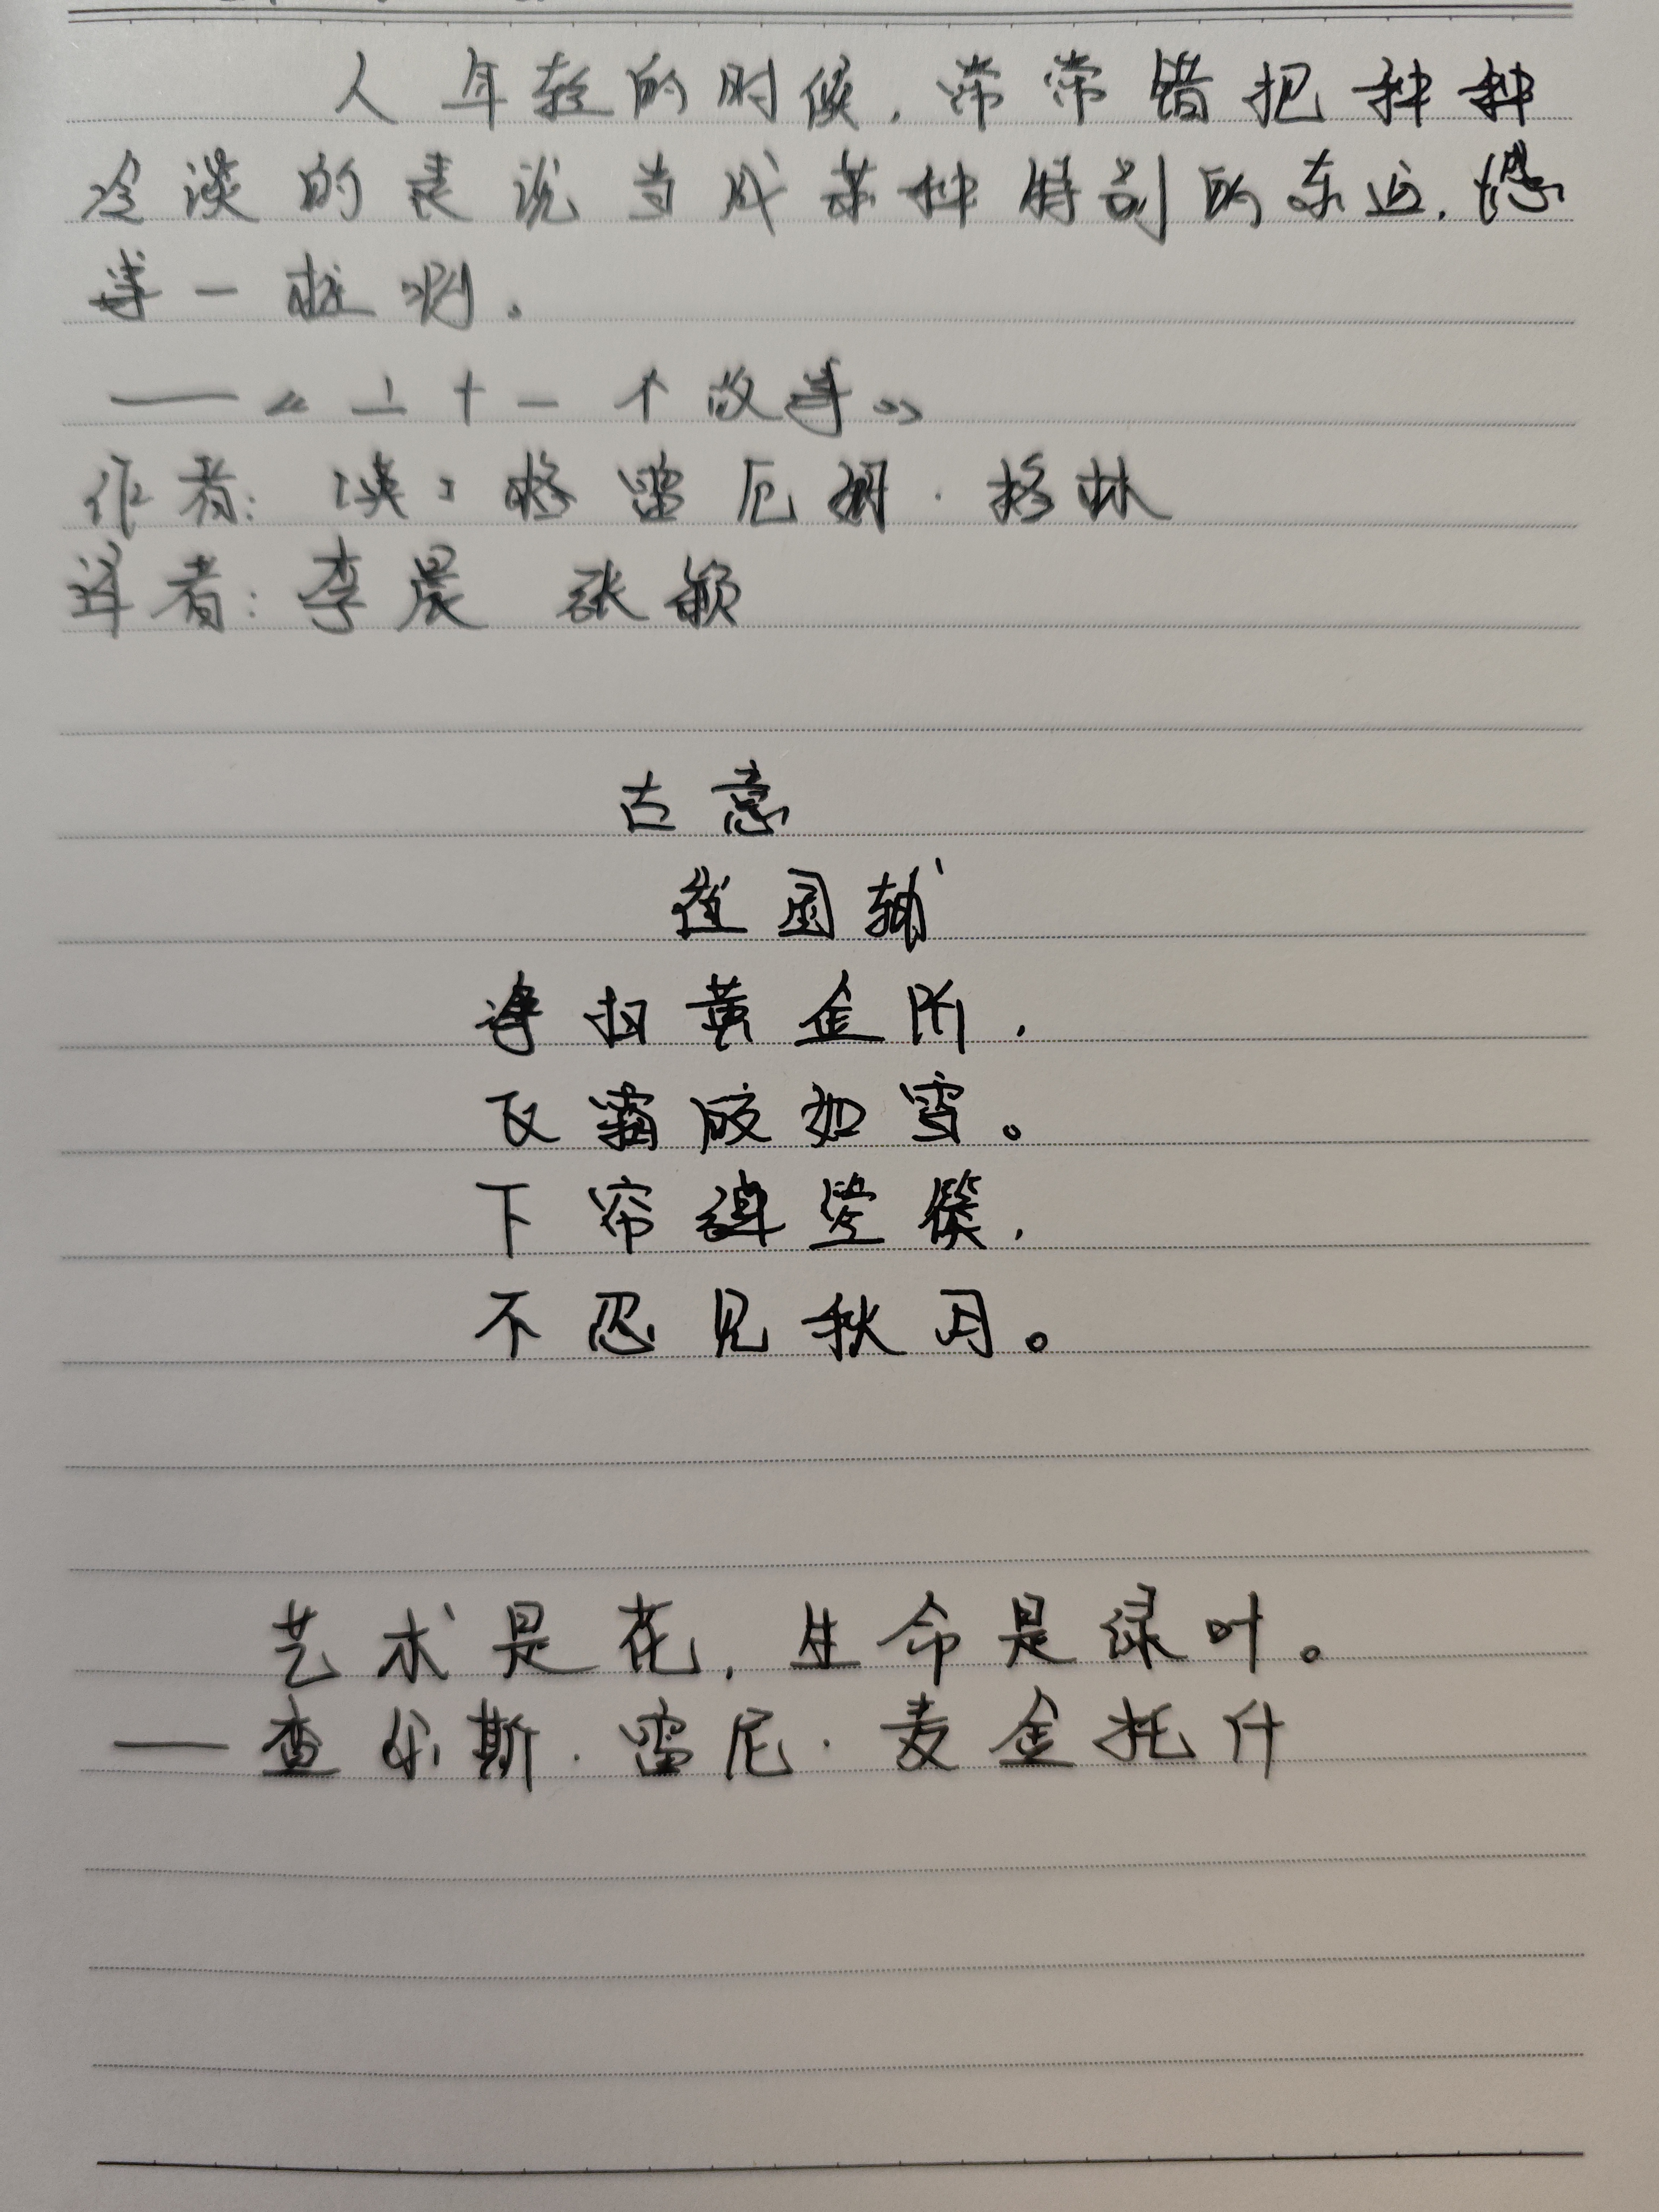 人年轻的时候，常常错把种种
冷淡的表现当成某种特别的东西，憾
事一桩啊。
——《二十一个故事》
作者：[英]格雷厄姆·格林
译者：李晨 张颖
古意
崔国辅
净扫黄金阶，
飞霜皎如雪。
下帘弹箜篌，
不忍见秋月。
艺术是花，生命是绿叶。
——查尔斯·雷尼·麦金托什